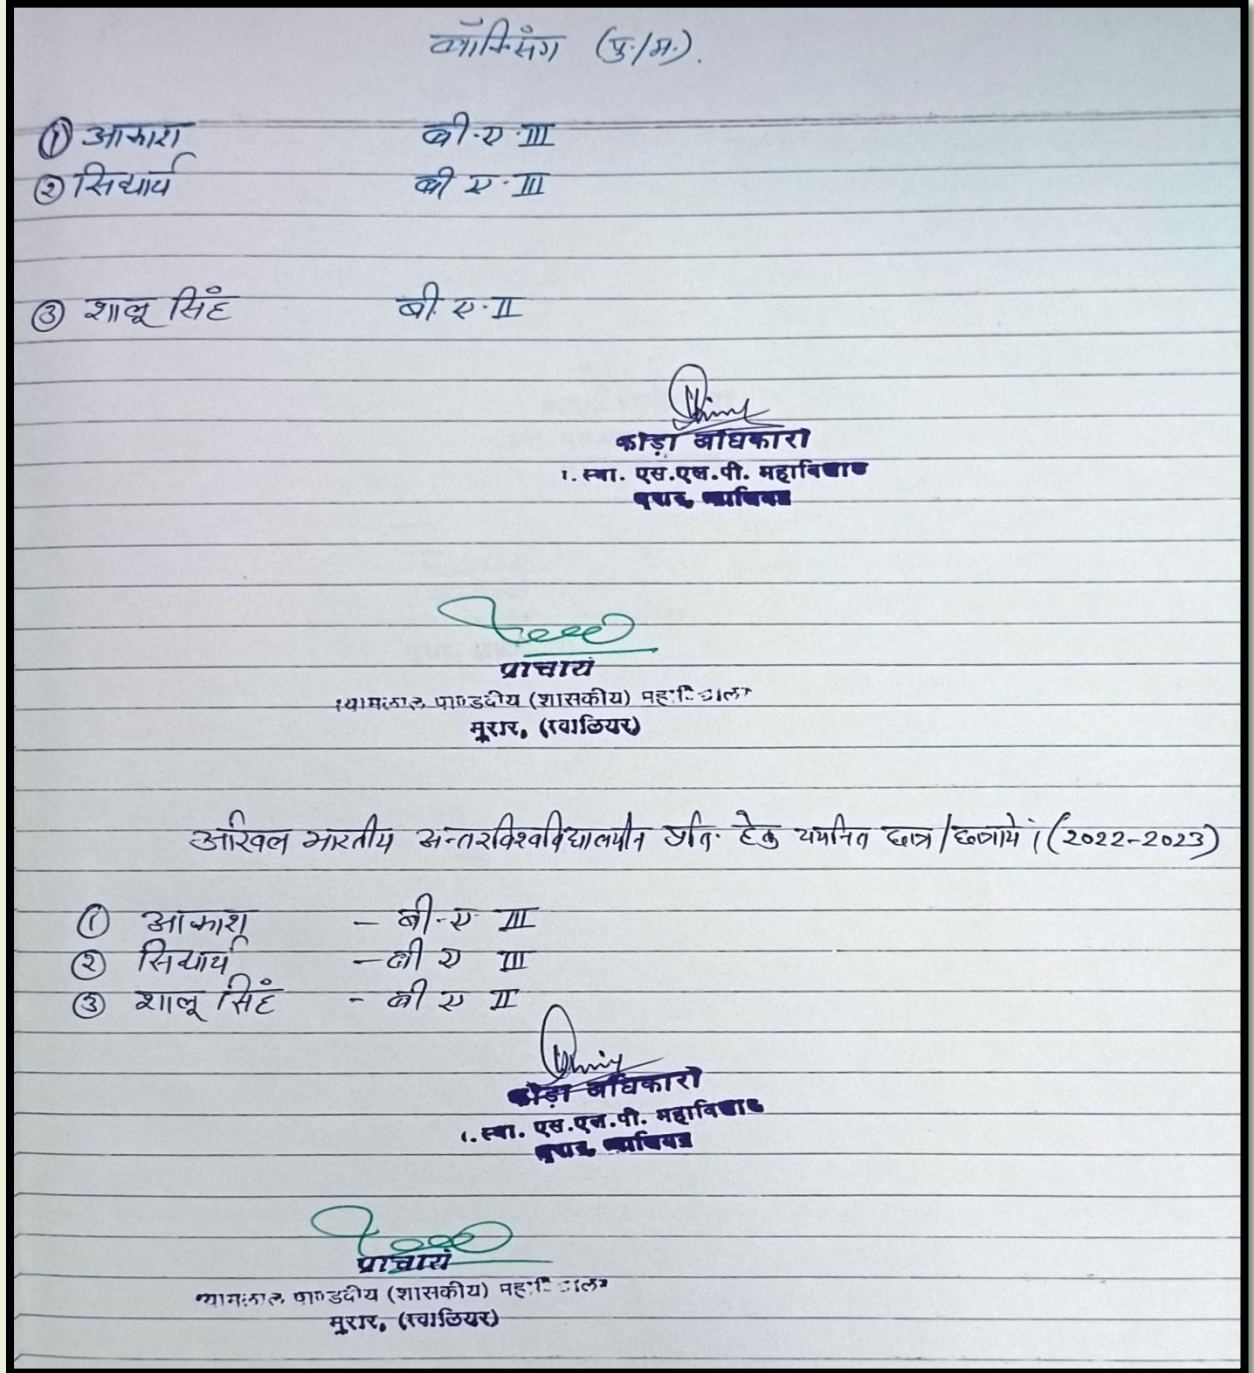 बॉक्सिंग (पु./म.).
① आकाश बी.ए.III
② सिद्धार्थ बी ए.III
③ शालू सिंह बी.ए.II
क्रीड़ा अधिकारी
स्वा. एस.एल.पी. महाविद्यालय
प्राचार्य
श्यामलाल पाण्डवीय (शासकीय) महाविद्यालय
मुरार, (ग्वालियर)
अखिल भारतीय अन्तरविश्वविद्यालयीन प्रति. हेतु चयनित छात्र/छात्रायें। (2022-2023)
① आकाश - बी.ए III
② सिद्धार्थ - बी ए III
③ शालू सिंह - बी ए II
क्रीड़ा अधिकारी
स्वा. एस.एल.पी. महाविद्यालय
प्राचार्य
श्यामलाल पाण्डवीय (शासकीय) महाविद्यालय
मुरार, (ग्वालियर)